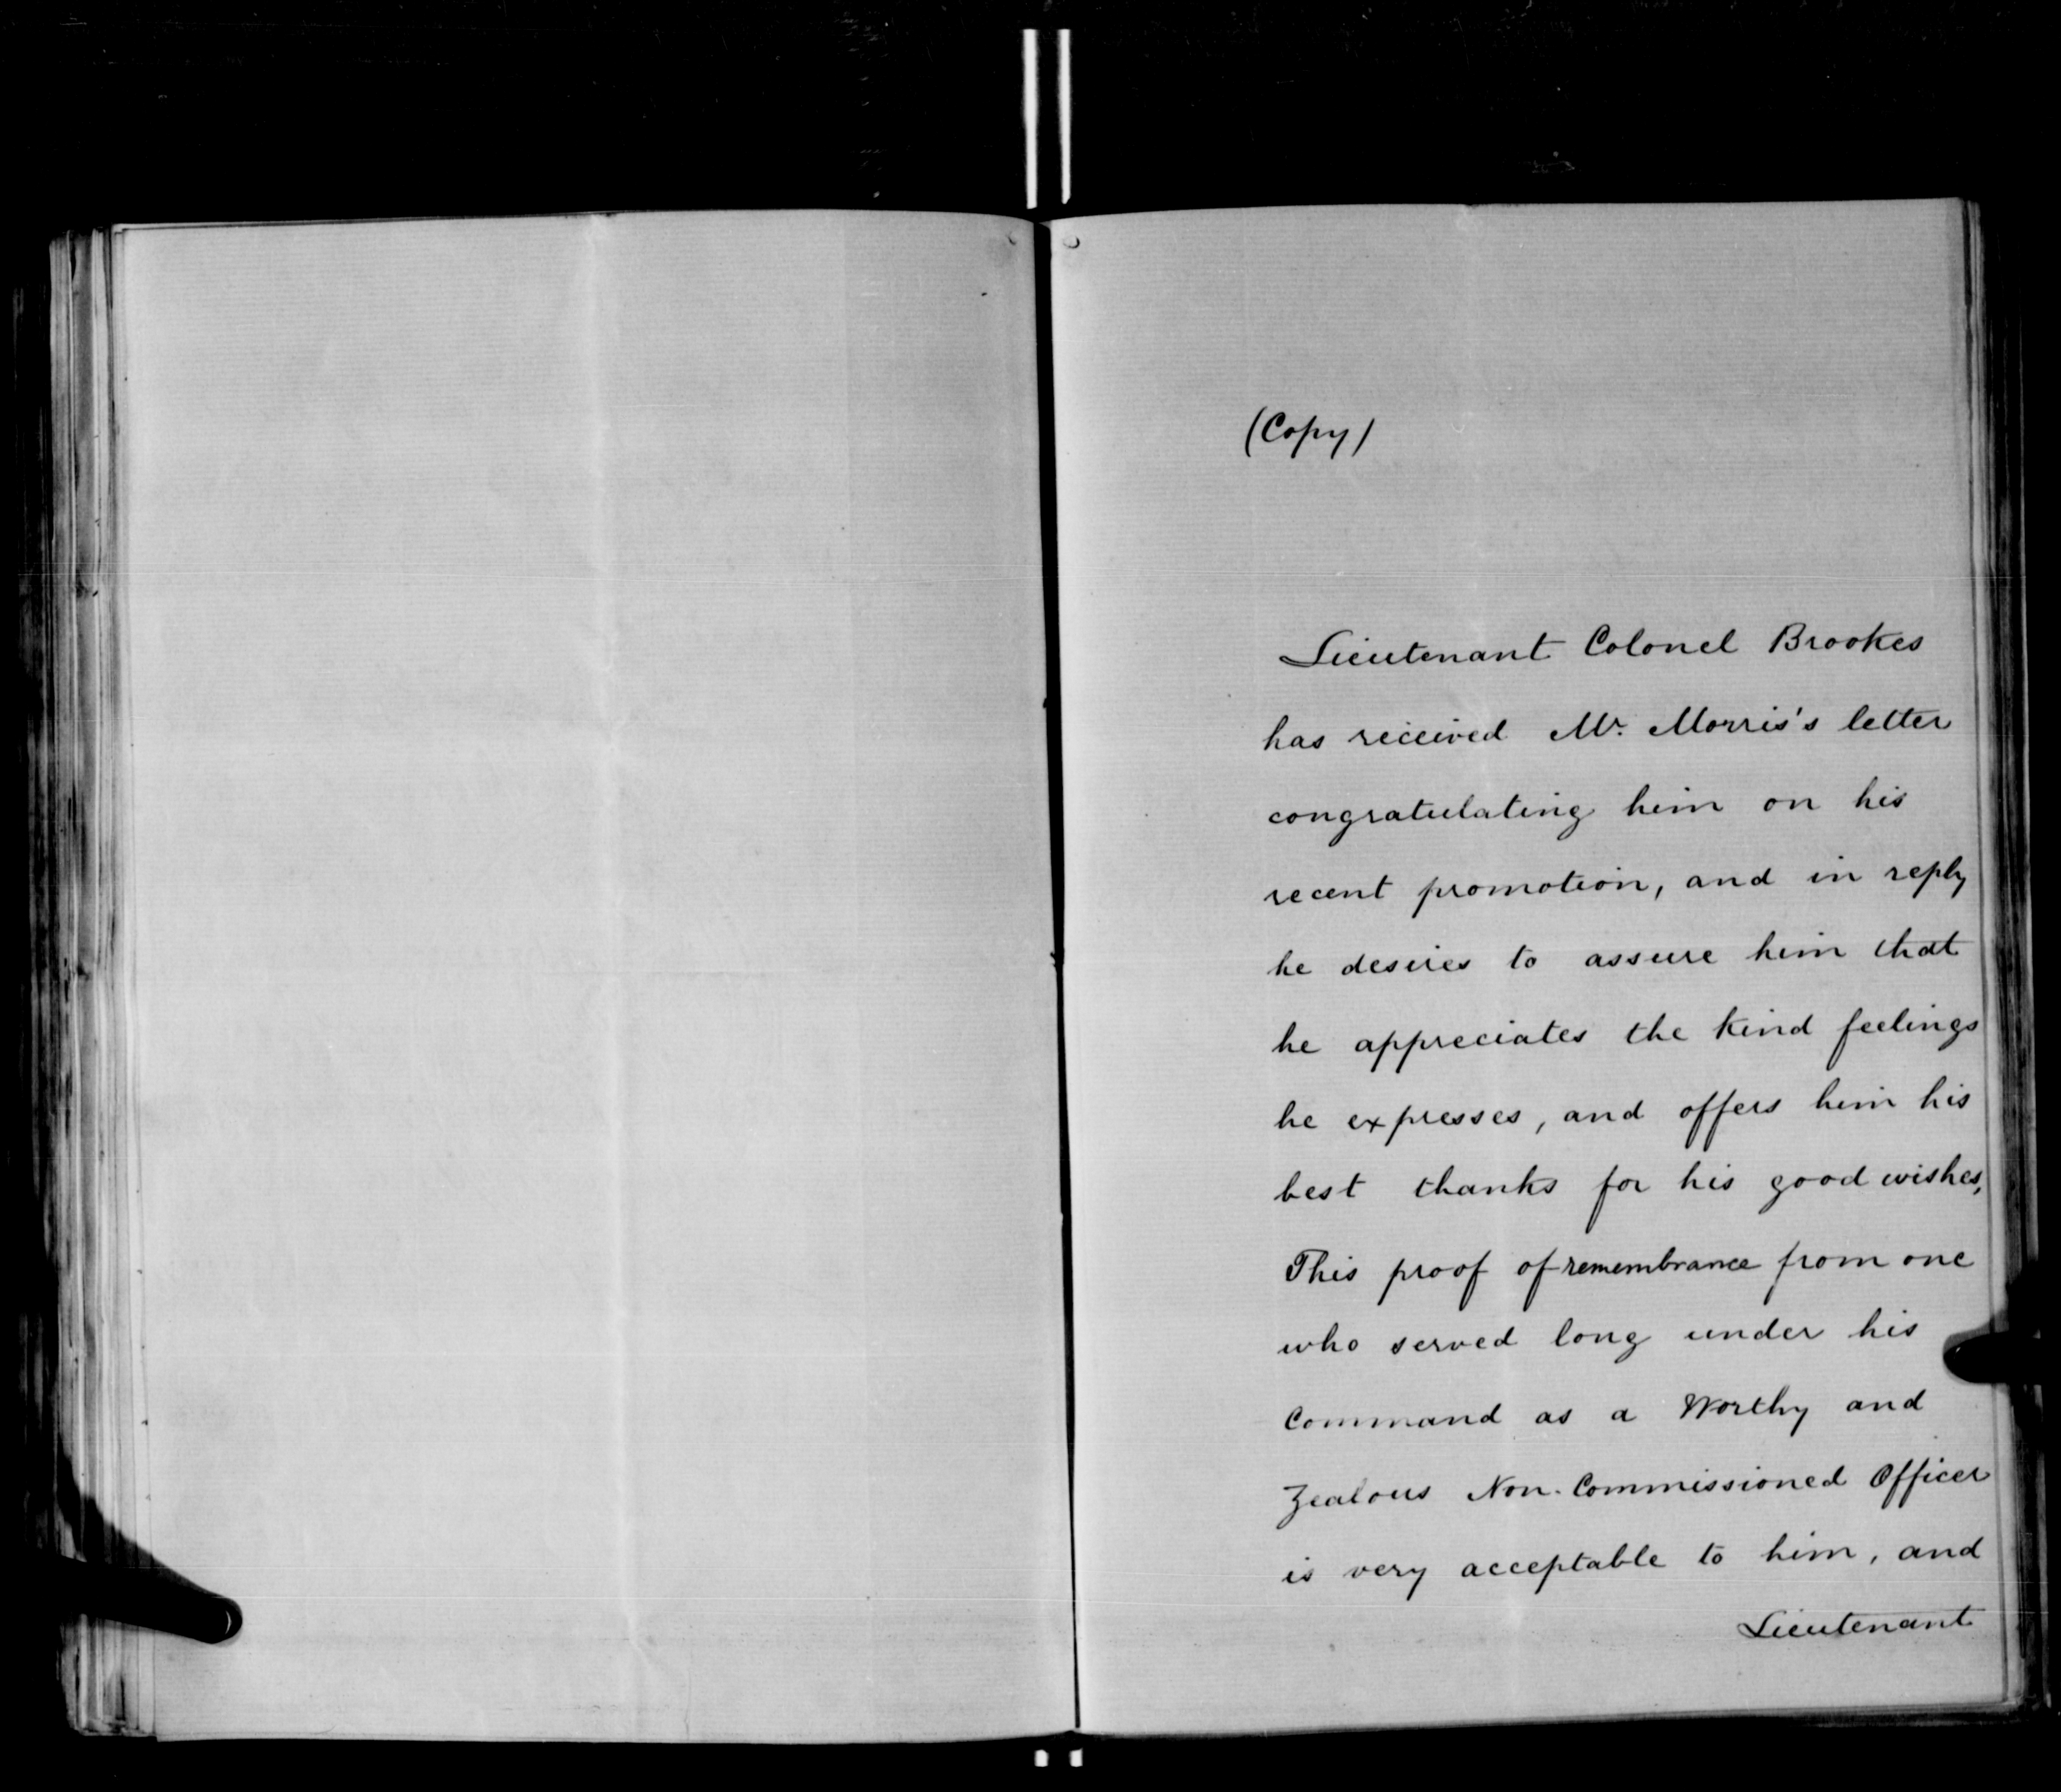 (Copy)
Lieutenant Colonel Brookes
has received Mr. Morris's letter
congratulating him on his
recent promotion, and in reply
he desires to assure him that
he appreciates the kind feelings
he expresses, and offers him his
best thanks for his good wishes,
This proof of remembrance from one
who served long under his
Command as a Worthy and
Zealous Non-Commissioned Officer
is very acceptable to him, and
Lieutenant